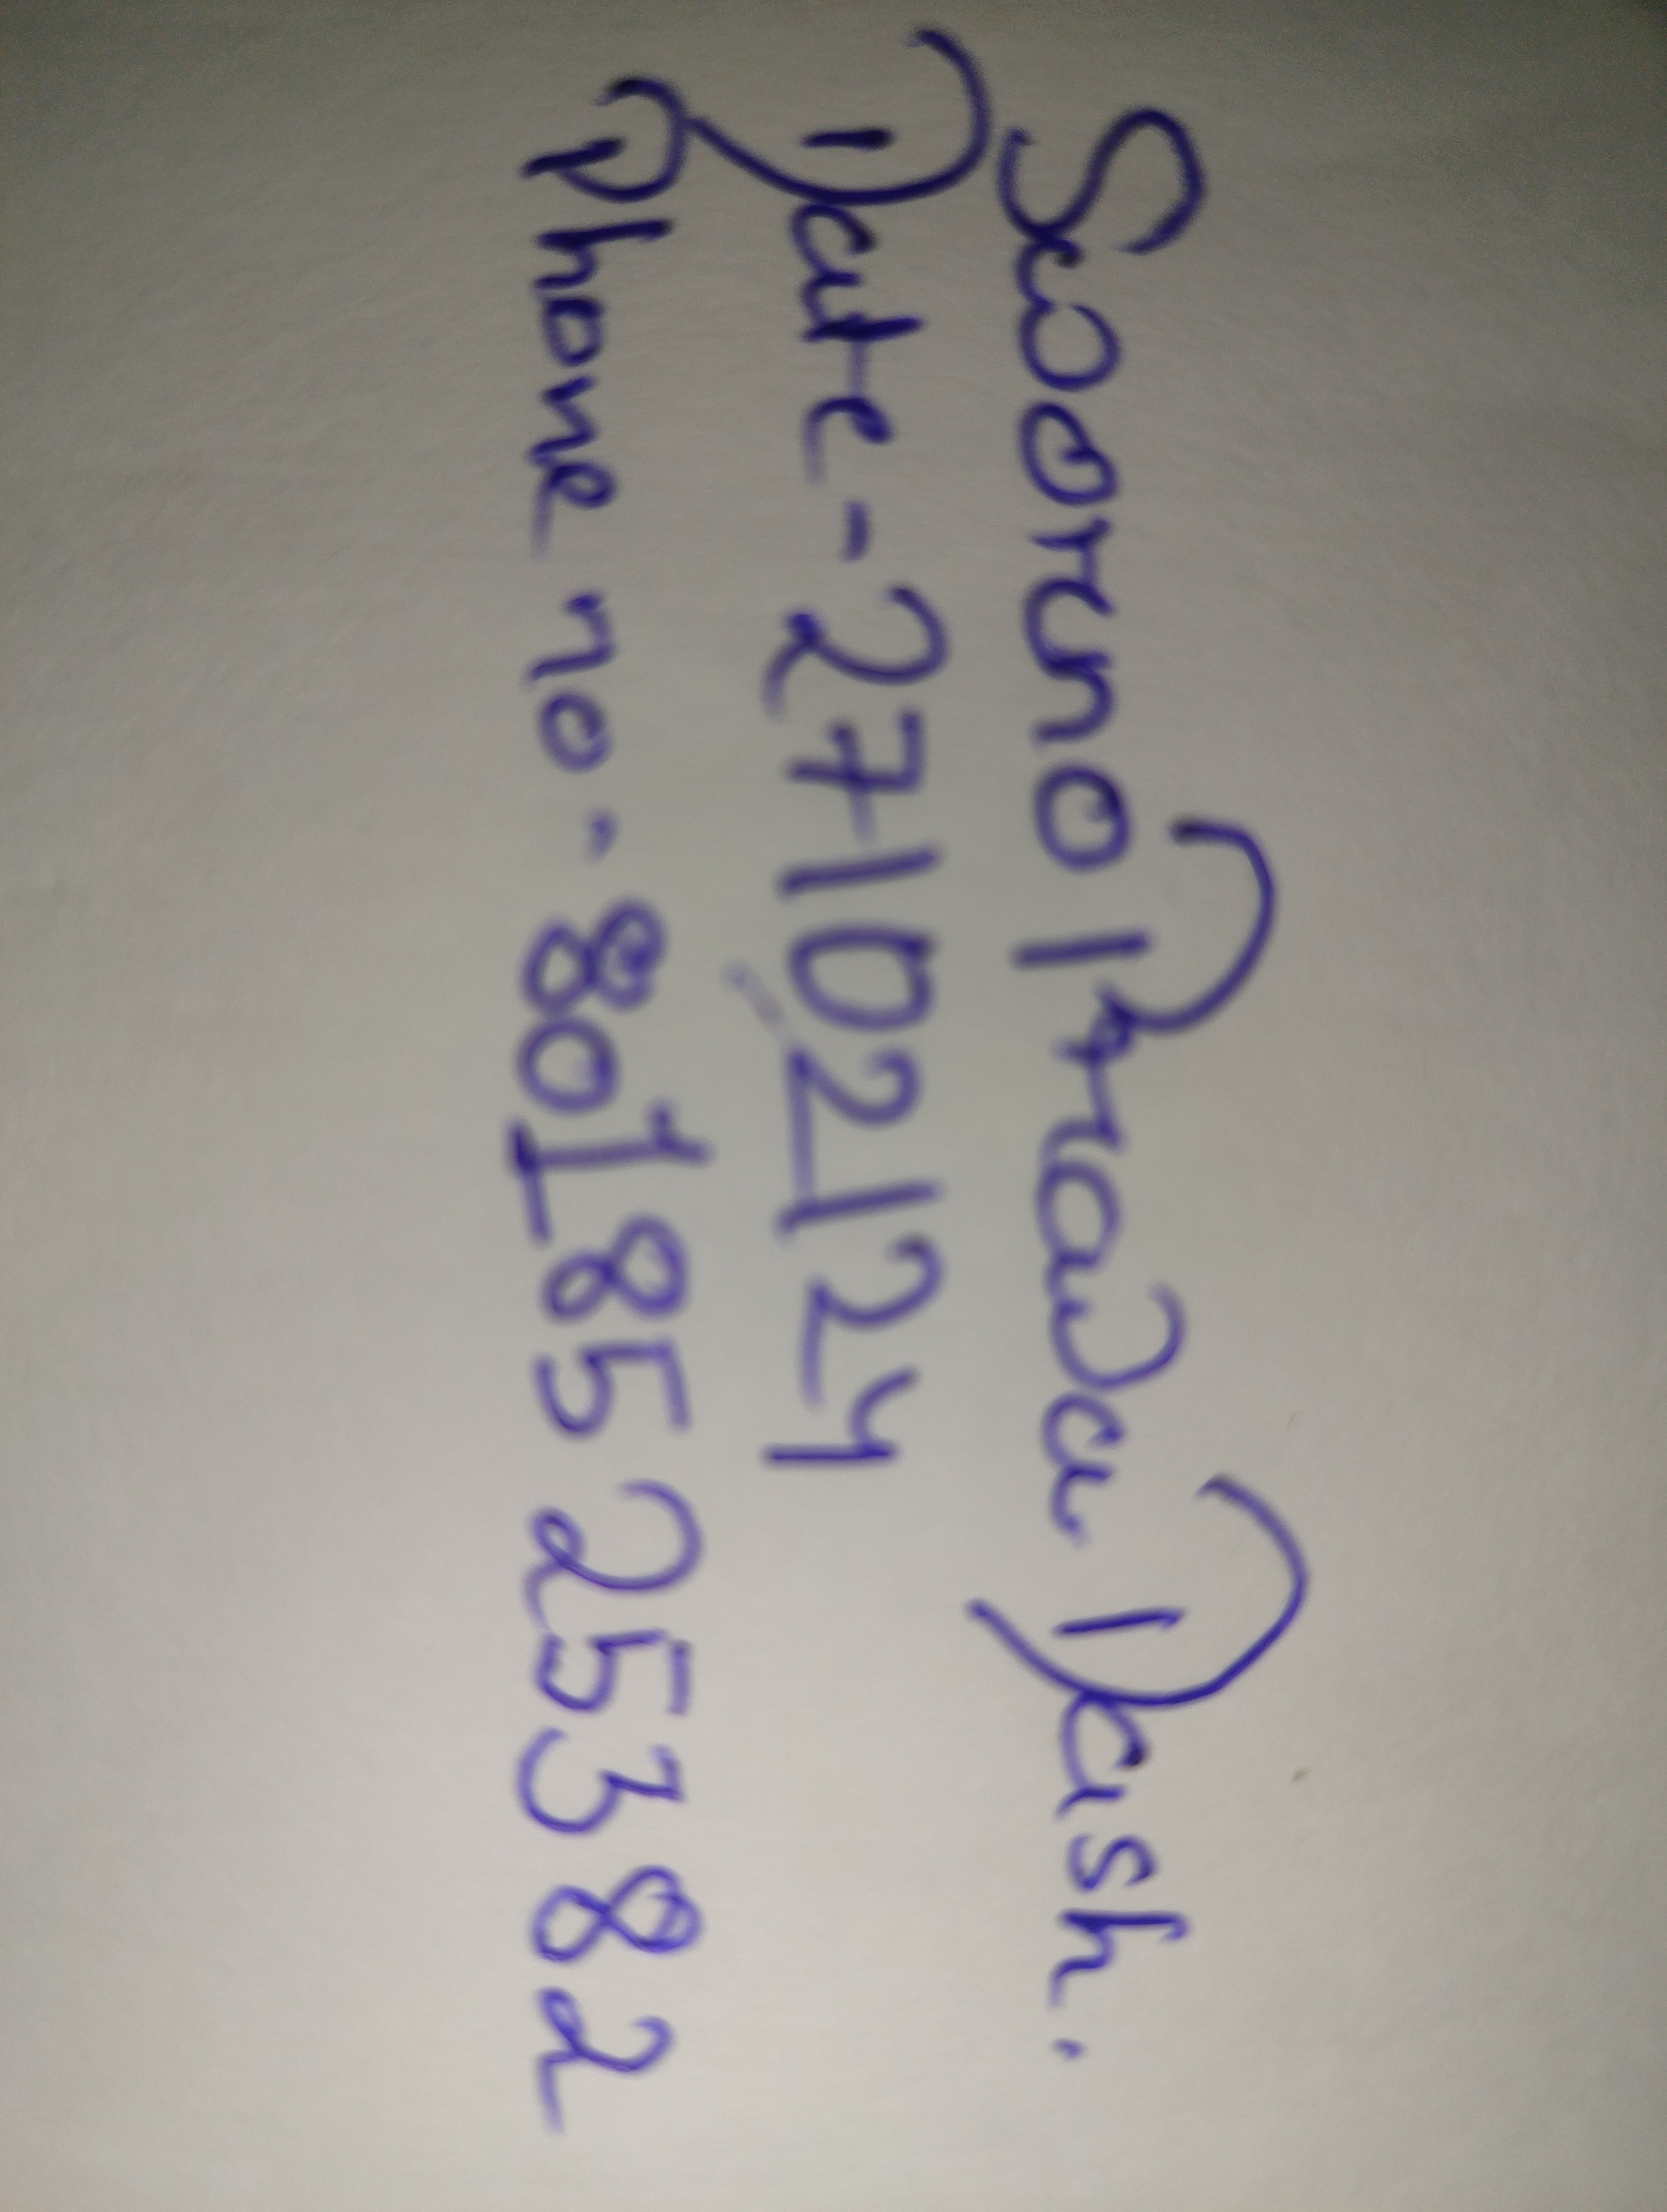 Sworno Prava Dash.
Date - 27/02/24
Phone no - 8018525382